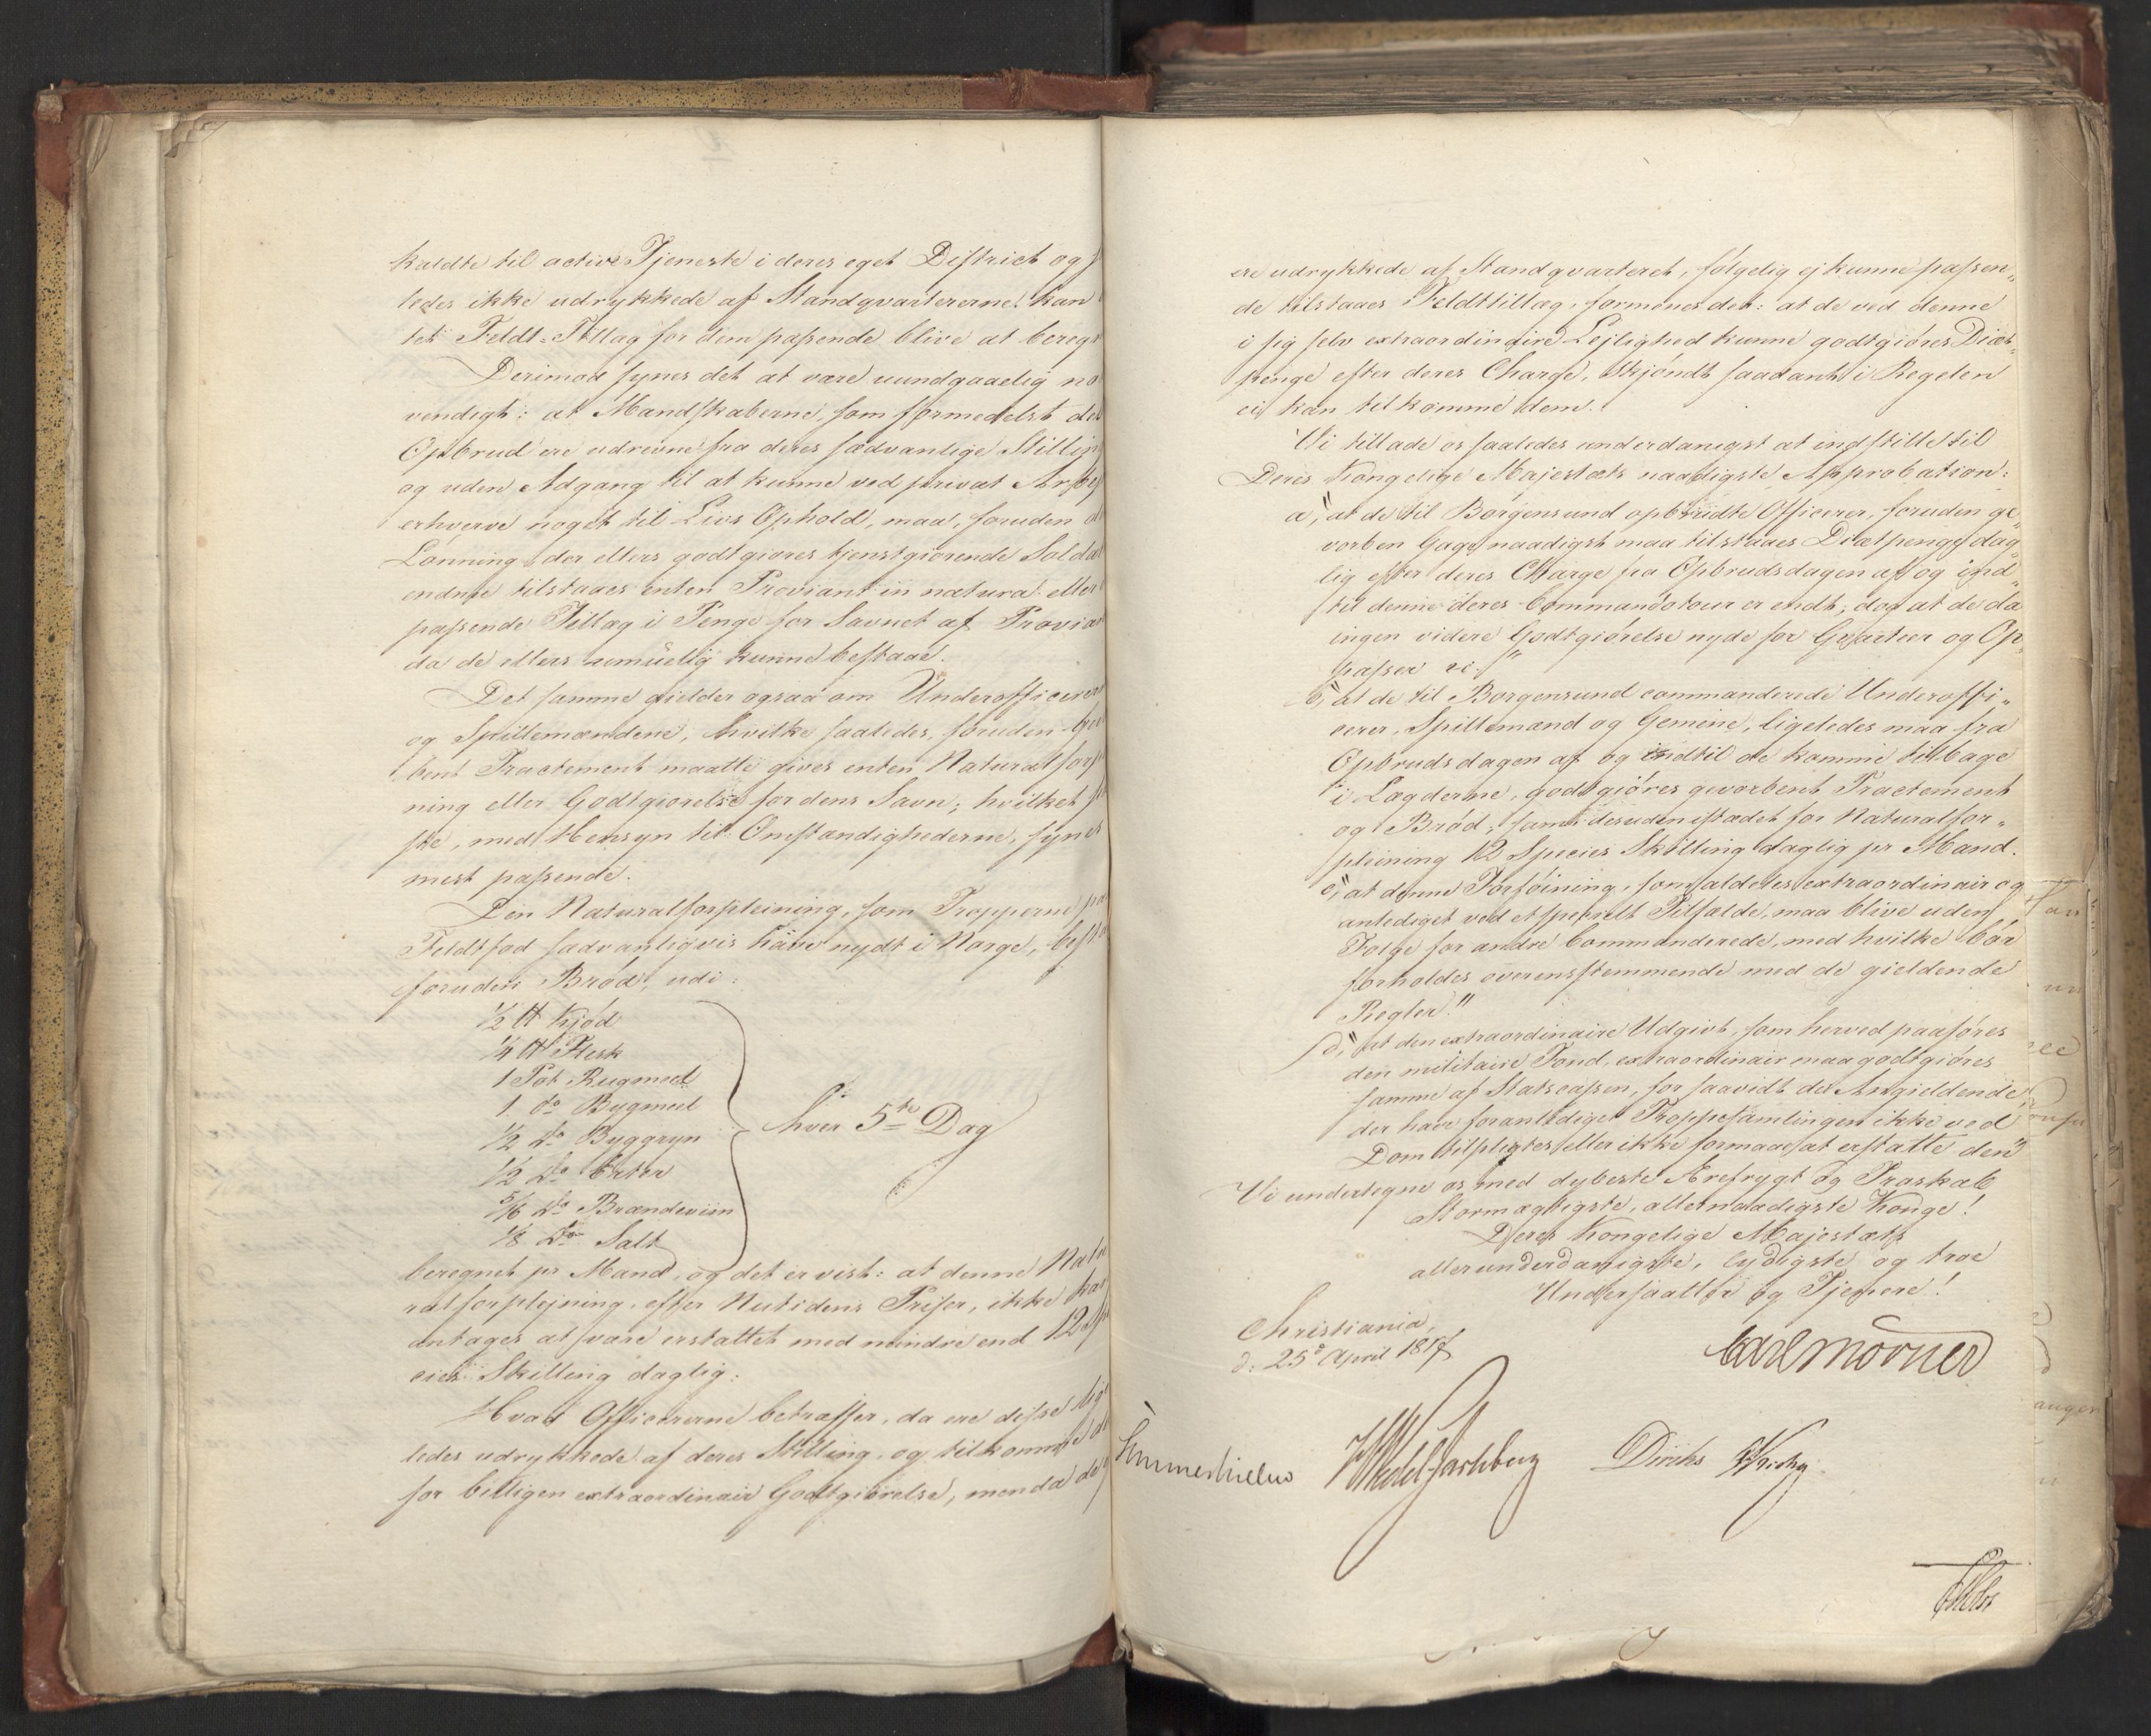 kaldte til active Tjeneste i deres eget District og s
ledes ikke udrykkede af Standqvartererne, kan
tet Feldt-Tillæg for dem passende blive at bereg
Derimod synes det at være uundgaaelig nø
vendigt: at Mandskaberne, som formedelst de
Opbrud ere udrevne fra deres sædvanlige Stilling
og uden Adgang til at kunne ved privat Arbej
erhverve noget til Livs Ophold, maa, foruden d
Lønning, der ellers godtgiøres tjenstgiørende Solda
endnu tilstaaes enten Proviant in natura eller
passende Tillæg i Penge for Savnet af Provian
da de ellers umuelig kunne bestaae.
Det samme gielder ogsaa om Underofficerer
og Spillemændene, hvilke saaledes, foruden gev
bent Tractement maatte gives enten Naturalforp
ning eller Godtgiørelse for dens Savn; hvilket s
ste, med Hensyn til Omstændighederne, synes
mest passende.
Den Naturalforpleining, som Tropperne pa
Feldtfod sædvanligvis have nydt i Norge, besto
foruden Brød, udi:
1/2 ℔ Kjød
1/4 ℔ Flesk
1 Pot Rugmeel
1 do Bygmeel
1/2 do Byggryn
1/2 do Erter
5/6 do Brændeviin
1/8 do Salt
hver 5te Dag
beregnet pr Mand, og det er vist: at denne Natu
ralforplejning, efter Nutidens Priser, ikke kan
antages at være erstattet med mindre end 12 Spe
cies Skilling daglig.
Hvad Officererne betræffer, da ere disse lige
ledes udrykkede af deres Stilling, og tilkomme de
for billigen extraordinair Godtgiørelse, men da de
ere udrykkede af Standqvarteret, følgelig ej kunne passen„
de tilstaaes Feldttillæg, formenes det: at de ved denne
i sig selv extraordinaire Lejlighed kunne godtgiøres Diæt„
penge efter deres Charge, skjøndt saadant i Regelen
ei kan tilkomme dem.
Vi tillade os saaledes underdanigst at indstille til
Deres Kongelige Majestæts naadigste Approbation:
a, "at de til Borgensund opbrudte Officerer, foruden ge„
vorben Gage naadigst maa tilstaaes Diætpenge dag„
lig efter deres Charge fra Opbrudsdagen af og ind„
til denne deres Commandotour er endt; dog at de da
ingen videre Godtgiørelse nyde for Qvarteer og Op„
passer ec."
b, "at de til Borgensund commanderede Underoffi„
cerer, Spillemænd og Gemene, ligeledes maa fra
Opbruds dagen af og indtil de komme tilbage
i Lægderne, godtgiøres gevorbent Tractement
og Brød, samt desuden istædet for Naturalfor„
pleining 12 Species Skilling daglig pr Mand.
c, "at denne Forføining, som aldeles extraordinair og
anlediget ved et specielt Tilfælde, maa blive uden
Følge for andre Commanderede, med hvilke bør
forholdes overensstemmende med de gieldende
Regler."
d, "at den extraordinaire Udgivt, som herved paaføres
den militaire Fond, extraordinair maa godtgiøres
samme af Statscassen, for saavidt de Angieldende
der have foranlediget Troppesamlingen ikke ved
Dom tilpligtes eller ikke formaae at erstatte den"
Vi undertegne os med dybeste Ærefrygt og Troskab
Stormægtigste, allernaadigste Konge!
Deres Kongelige Majestæts
allerunderdanigste, lydigste og troe
Undersaatter og Tjenere!
Christiania,
d: 25de April 1817
Carl Mörner
Sommerhielm Wedel Jarlsberg Diriks